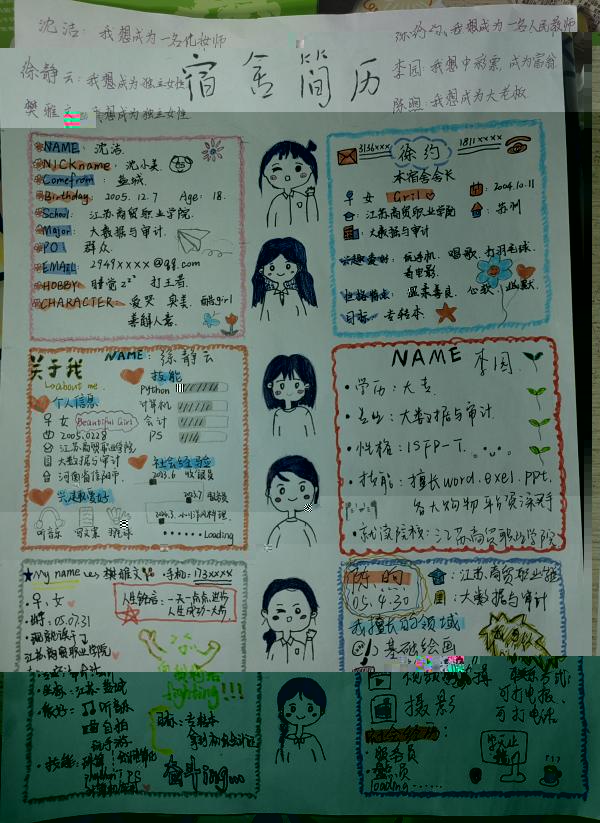 沈洁：我想成为一名化妆师
徐静云：我想成为独立女性
樊雅文：我想成为独立女性
宿舍简历
徐约：我想成为一名人民教师
李园：我想中彩票，成为富翁
陈煦：我想成为大老板
NAME：沈洁
NICKname：沈小美
Comefrom：盐城
Birthday：2005.12.7 Age：18.
School：江苏商贸职业学院
Major：大数据与审计
PO：群众
EMAIL：2949xxxx@qq.com
HOBBY：睡觉zzz 打王者
CHARACTER：爱哭 爱美 酷girl
善解人意
3136xxx
1811xxxx
徐约
本宿舍舍长
女 Gril
2004.10.11
：江苏商贸职业学院
：苏州
：大数据与审计
兴趣爱好：玩手机 唱歌 打羽毛球
看电影
性格特点：温柔善良
目标：专转本
关于我
about me
NAME：徐静云
个人信息
女 Beautiful Girl
2005.0228
江苏商贸职业学院
大数据与审计
河南省信阳市
兴趣爱好
听音乐
羽毛球
技能
Python
计算机
会计
PS
社会经验
2023.6 收银员
Loading
NAME 李园
学历：大专
专业：大数据与审计
性格：ISFP-T
技能：擅长word.exel.ppt.
各大购物平台资深
就读院校：江苏商贸职业学院
My name is 樊雅文 手机：173xxxx
女
05.07.31
就读于
江苏商贸职业学院
江苏·盐城
爱好：听音乐
自拍
玩手游
人生格言：一天一点点进步
人生成功一大步
fighting!!!
目标：专转本
奋斗ing...
陈煦
05.4.30
：江苏商贸职业学院
：大数据与审计
我擅长的领域
基础绘画
摄影
可打电报
可打电话
社会经历
服务员
loading......